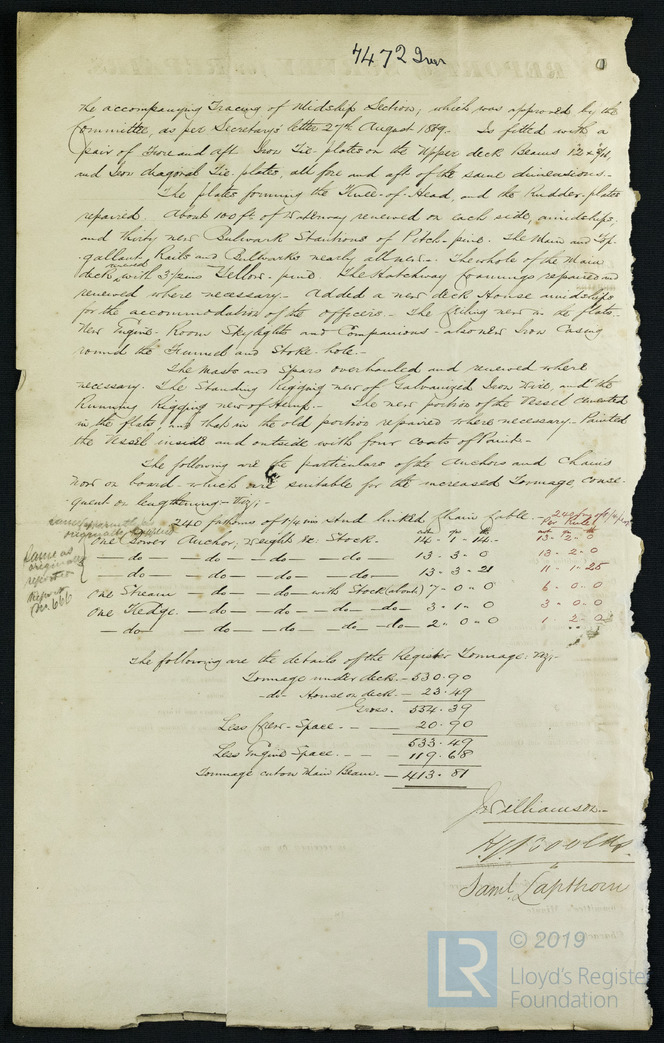 7472 Iron
the accompanying Tracing of Midship Section, which was approved by the
Committee, as per Secretary's letter 27th August 1869. Is fitted with a
pair of Fore and aft Iron Tie-plates on the Upper deck Beams 12 x
and Iron diagonal Tie-plates, all fore and aft of the same dimensions.-
The plates forming the Knee-of-Head, and the Rudder-plates
repaired. About 100 ft of Waterway renewed on each side, amidships.
and thirty new Bulwark Stantions of Pitch-pine. The Main and Top-
-gallant Rails and Bulwarks nearly all new.- The whole of the Main
deck renewed with 3½ ins Yellow-pine The Hatchway Coamings repaired and
renewed where necessary.- Added a new deck House amidships
for the accommodation of the officers.- The ceiling new in the flats.
New Engine-Room Skylights and Companions - also new Iron Casing
round the Funnel and Stoke-hole.-
The Masts and Spars overhauled and renewed where
necessary. The Standing Rigging new of Galvanized Iron Wire, and the
Running Rigging new of Hemp.- The new portion of the Vessel cemented
in the flats, and that in the old portion repaired where necessary - Painted
the Vessel inside and outside with four Coats of Paint.-
The following are the particulars of the Anchors and Chains
now on board which are suitable for the increased Tonnage conse-
-quent on lengthening - Viz;-
240 fathoms of 1 5/16 ins Stud linked Chain Cable.- 240
Per Rule
originally
One Bower Anchor, weight Ex. Stock. 14 - 1 - 14 13 - 2 - 0
Same as
originally
reported
Report
No. 666
- do - - do - - do - - do - 13 - 3 - 0 13 - 2 - 0
- do - - do - - do - - do - 13 - 3 - 21 11 - 1 - 25
One Stream - do - - do - with Stock (about) 7 - 0 - 0 6 - 0 - 0
One Kedge - do - - do - - do - - do - 3 - 1 - 0 3 - 0 - 0
- do - - do - - do - - do - - do - 2 - 0 - 0 1 - 2 - 0
The following are the details of the Register Tonnage: Viz;-
Tonnage under deck - 530.90
- do - House on deck - 23.49
Gross. 554.39
Less Crew-Space - - 20.90
533.49
Less Engine Space - - 119.68
Tonnage cut on Main Beam. - 413.81
J. Williamson
Saml. Lapthorn
LR
© 2019
Lloyd's Register
Foundation